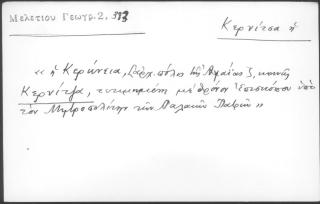 Μελετίου Γεωγρ. 2, 373
Κερνίτσα ἡ
« ἡ Κερύνεια, πόλις τῆς Ἀχαΐας, κοινῶς
Κερνίτζα, τετιμημένη μὲ θρόνον Ἐπισκόπου ὑπὸ
τὸν Μητροπολίτην τῶν Παλαιῶν Πατρῶν »